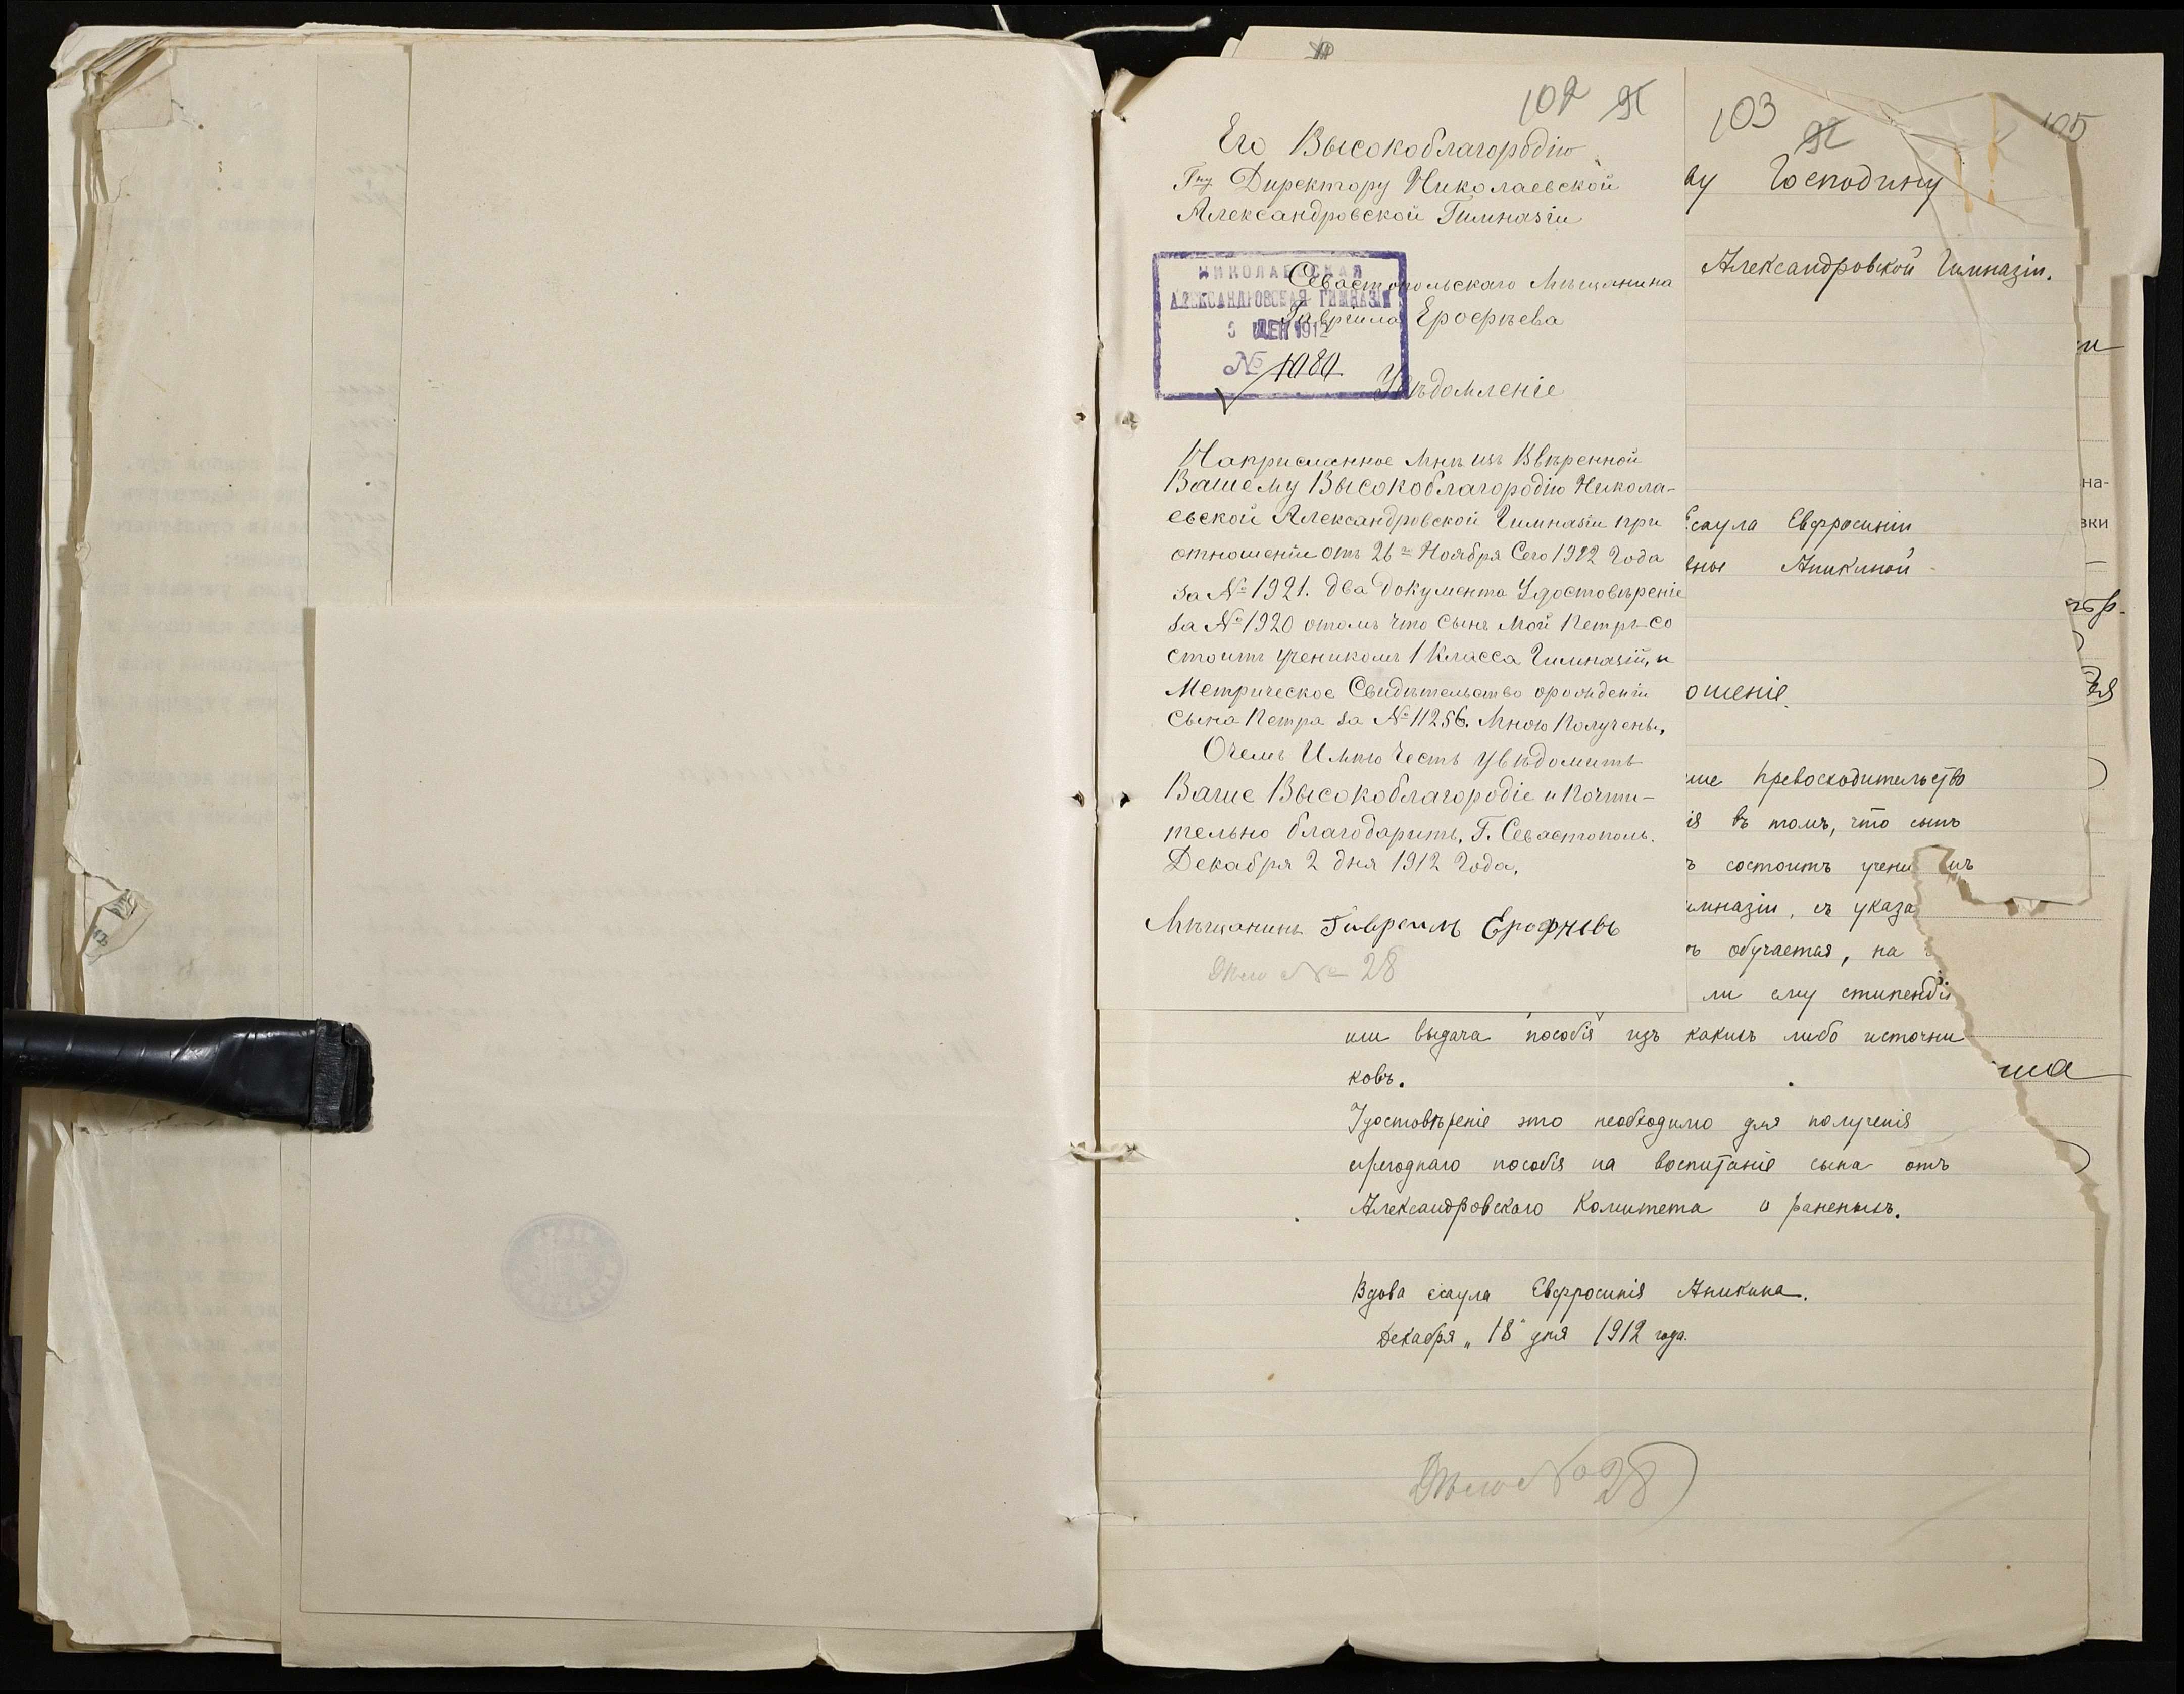 102 91
Его Высокоблагородію
Гну Директору Николаевской
Александровской Гимназіи
НИКОЛАЕВСКАЯ
АЛЕКСАНДРОВСКАЯ ГИМНАЗІЯ
5 ДЕК 1912
№ 1080
Севастопольскаго Мѣщанина
Гавріила Ерофѣева
Увѣдомленіе
Наприсланное Мнѣ изъ Ввѣренной
Вашему Высокоблагородію Никола-
евской Александровской Гимназіи при
отношеніи отъ 26го Ноября Сего 1912 Года
за № 1921. два Документа Удостовѣреніе
за № 1920 отомъ что Сынъ Мой Петръ со
стоитъ ученикомъ 1 Класса Гимназій, и
Метрическое Свидѣтельство орожденіи
Сына Петра за № 11256. Мною Получены,
Очемъ Имѣю Честь Увѣдомить
Ваше Высокоблагородіе и Почти-
тельно благодарить, Г. Севастополь.
Декабря 2 дня 1912 Года,
Мѣщанинъ Гавреилъ Ерофѣевъ
Дѣло № 28
103 92
ву Господину
Александровской Гимназіи.
Есаула Евфросиніи
вны Аникиной
ошеніе.
ше превосходительство
ія въ томъ, что сынъ
ъ состоитъ учени имъ
имназіи, съ указа
ъ обучается, на
ли ему стипендія
или выдача пособія изъ какихъ либо источни
ковъ.
Удостовѣреніе это необходимо для полученія
ежегоднаго пособія на воспитаніе сына отъ
Александровскаго Комитета о раненыхъ.
Вдова есаула Евфросинія Аникина.
Декабря „18" дня 1912 года.
Дѣло № 28
105
на-
вки